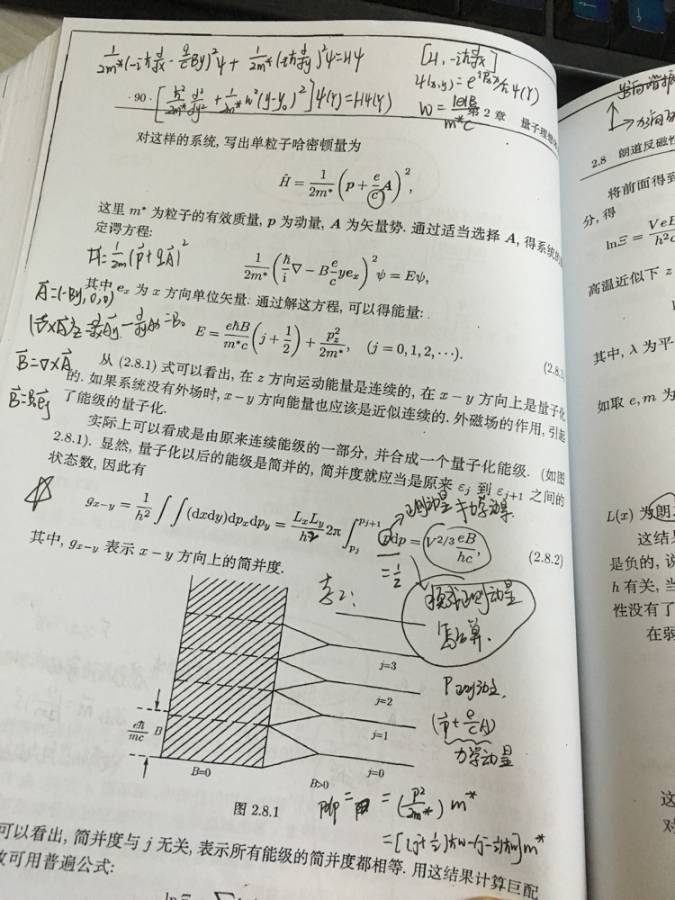 1/2m*(-iħ d/dx - e/c By)²ψ + 1/2m*(-iħ d/dy)²ψ = Hψ
[H, -iħ d/dx]
[-ħ²/2m* d²/dy² + 1/2 m*w²(y-y₀)²]ψ(Y) = Hψ(Y)
w = |e|B/m*c
· 90 ·
第 2 章 量子理想
对这样的系统, 写出单粒子哈密顿量为
Ĥ = 1/2m* (p + e/c A)²,
这里 m* 为粒子的有效质量, p 为动量, A 为矢量势. 通过适当选择 A, 得系统的
定谔方程:
H = 1/2m (p⃗+qA⃗)²
1/2m* (ħ/i ∇ - B e/c yeₓ)² ψ = Eψ,
A⃗=(-By,0,0)
其中 eₓ 为 x 方向单位矢量. 通过解这方程, 可以得能量:
E = eħB/m*c (j + 1/2) + p_z²/2m*, (j = 0, 1, 2, ···).
(2.8.1)
B⃗=∇×A⃗
从 (2.8.1) 式可以看出, 在 z 方向运动能量是连续的, 在 x − y 方向上是量子化
的. 如果系统没有外场时, x − y 方向能量也应该是近似连续的. 外磁场的作用, 引起
了能级的量子化.
实际上可以看成是由原来连续能级的一部分, 并合成一个量子化能级. (如图
2.8.1). 显然, 量子化以后的能级是简并的, 简并度就应当是原来 εj 到 εj+1 之间的
状态数, 因此有
正则动量
力学动量
g_{x−y} = 1/h² ∫∫(dxdy)dpₓdp_y = LₓL_y/h² 2π ∫_{pj}^{pj+1} pdp = V^{2/3} eB/hc,
(2.8.2)
= 1/2
其中, g_{x−y} 表示 x − y 方向上的简并度.
换成正则动量
j=3
j=2
j=1
j=0
eħ/mc B
B=0
B>0
(p⃗+e/c A)
力学动量
图 2.8.1
= (p²/2m*) m*
=[(j+1/2)ħw-(j-1/2)ħw]m*
可以看出, 简并度与 j 无关, 表示所有能级的简并度都相等. 用这结果计算巨配
可用普遍公式:
2.8 朗道反磁性
将前面得到
分, 得
lnΞ = VeB/h²c
高温近似下
其中, λ 为平
如取 e, m 为
L(x) 为朗
这结
是负的, 说
h 有关, 当
性没有了
在弱
这
对